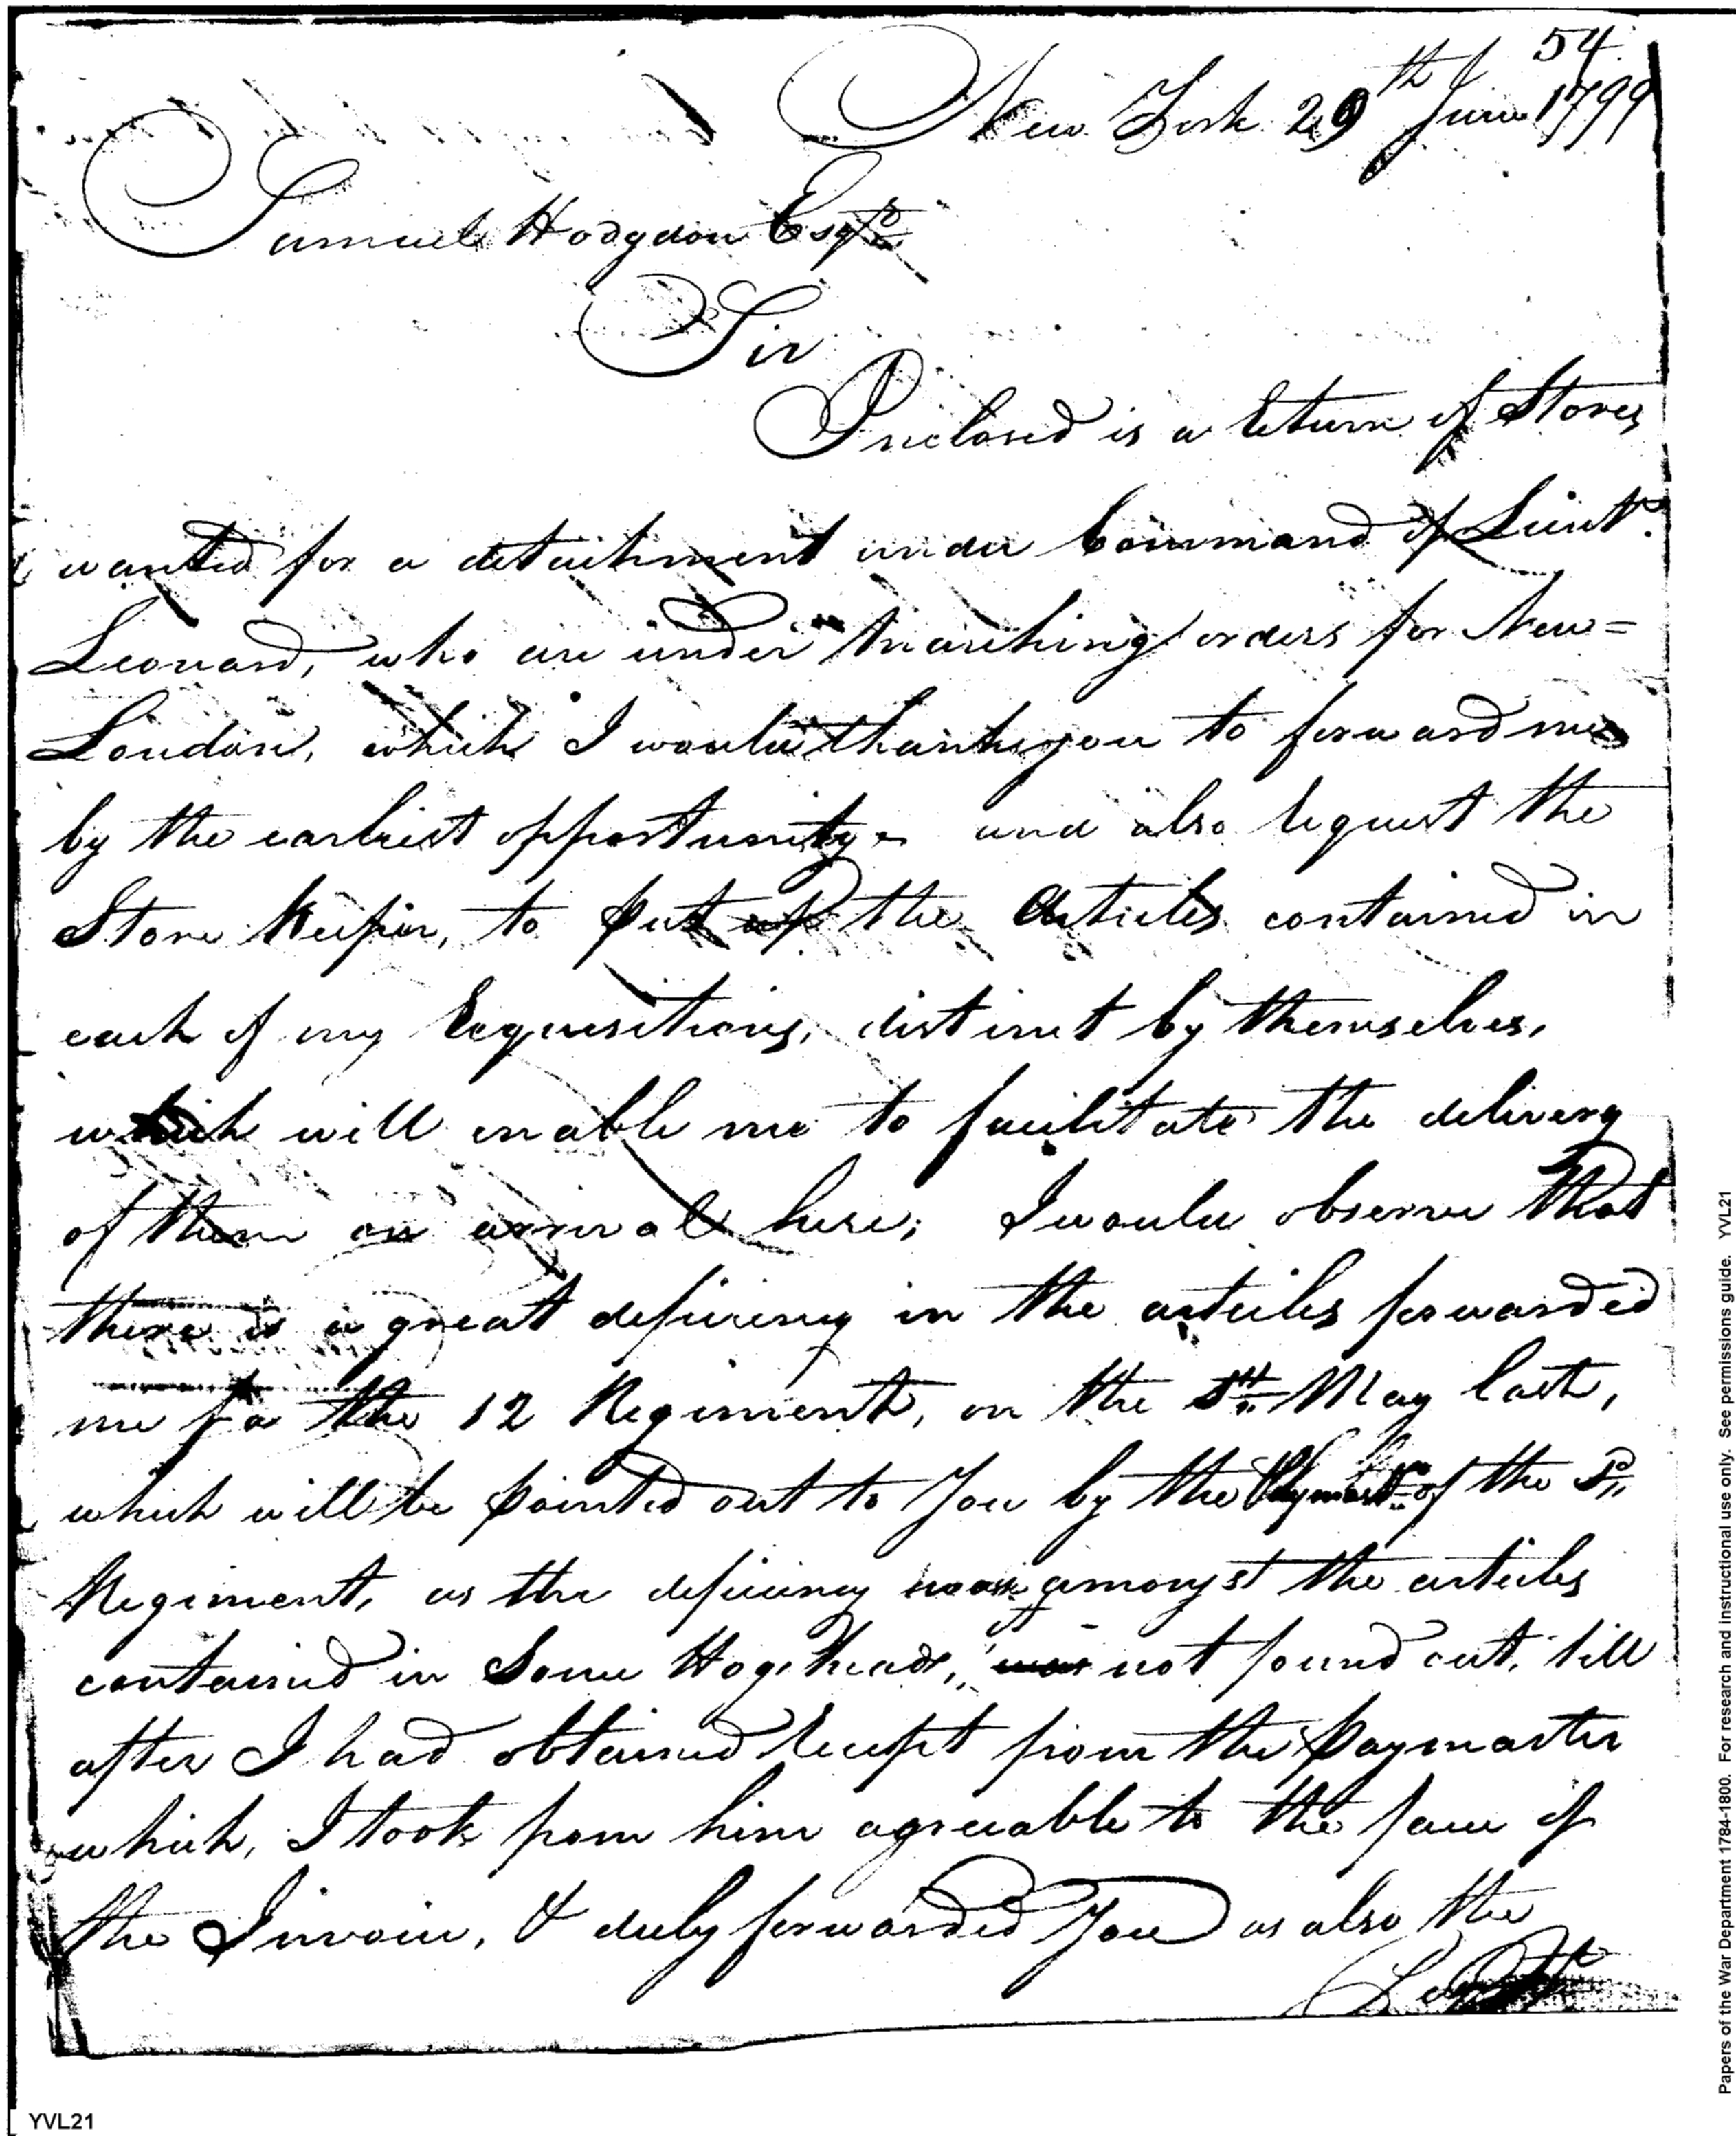 54
New York 29th June 1799
Samuel Hodgdon Esqr
Sir
Inclosed is a Return of Stores
wanted for a detachment under Command of Lieut.
Leonard, who are under marching orders for New=
London, which I would thank you to forward me
by the earliest opportunity. and also request the
Store Keeper, to put up the Articles contained in
each of my Requisitions, distinct by themselves,
which will enable me to facilitate the delivery
of them on arrival here; I would observe that
there is a great deficiency in the articles forwarded
me for the 12 Regiment, on the May last,
which will be pointed out to You by the Paymastr. of the Sd.
Regiment, as the deficiency amongst the articles
contained in Some Hogsheads, was not found out, till
after I had obtained Receipt from the Paymaster
which, I took from him agreeable to the face of
the Invoice, & duly forwarded You as also the
YVL21
Papers of the War Department 1784-1800. For research and instructional use only. See permissions guide. YVL21